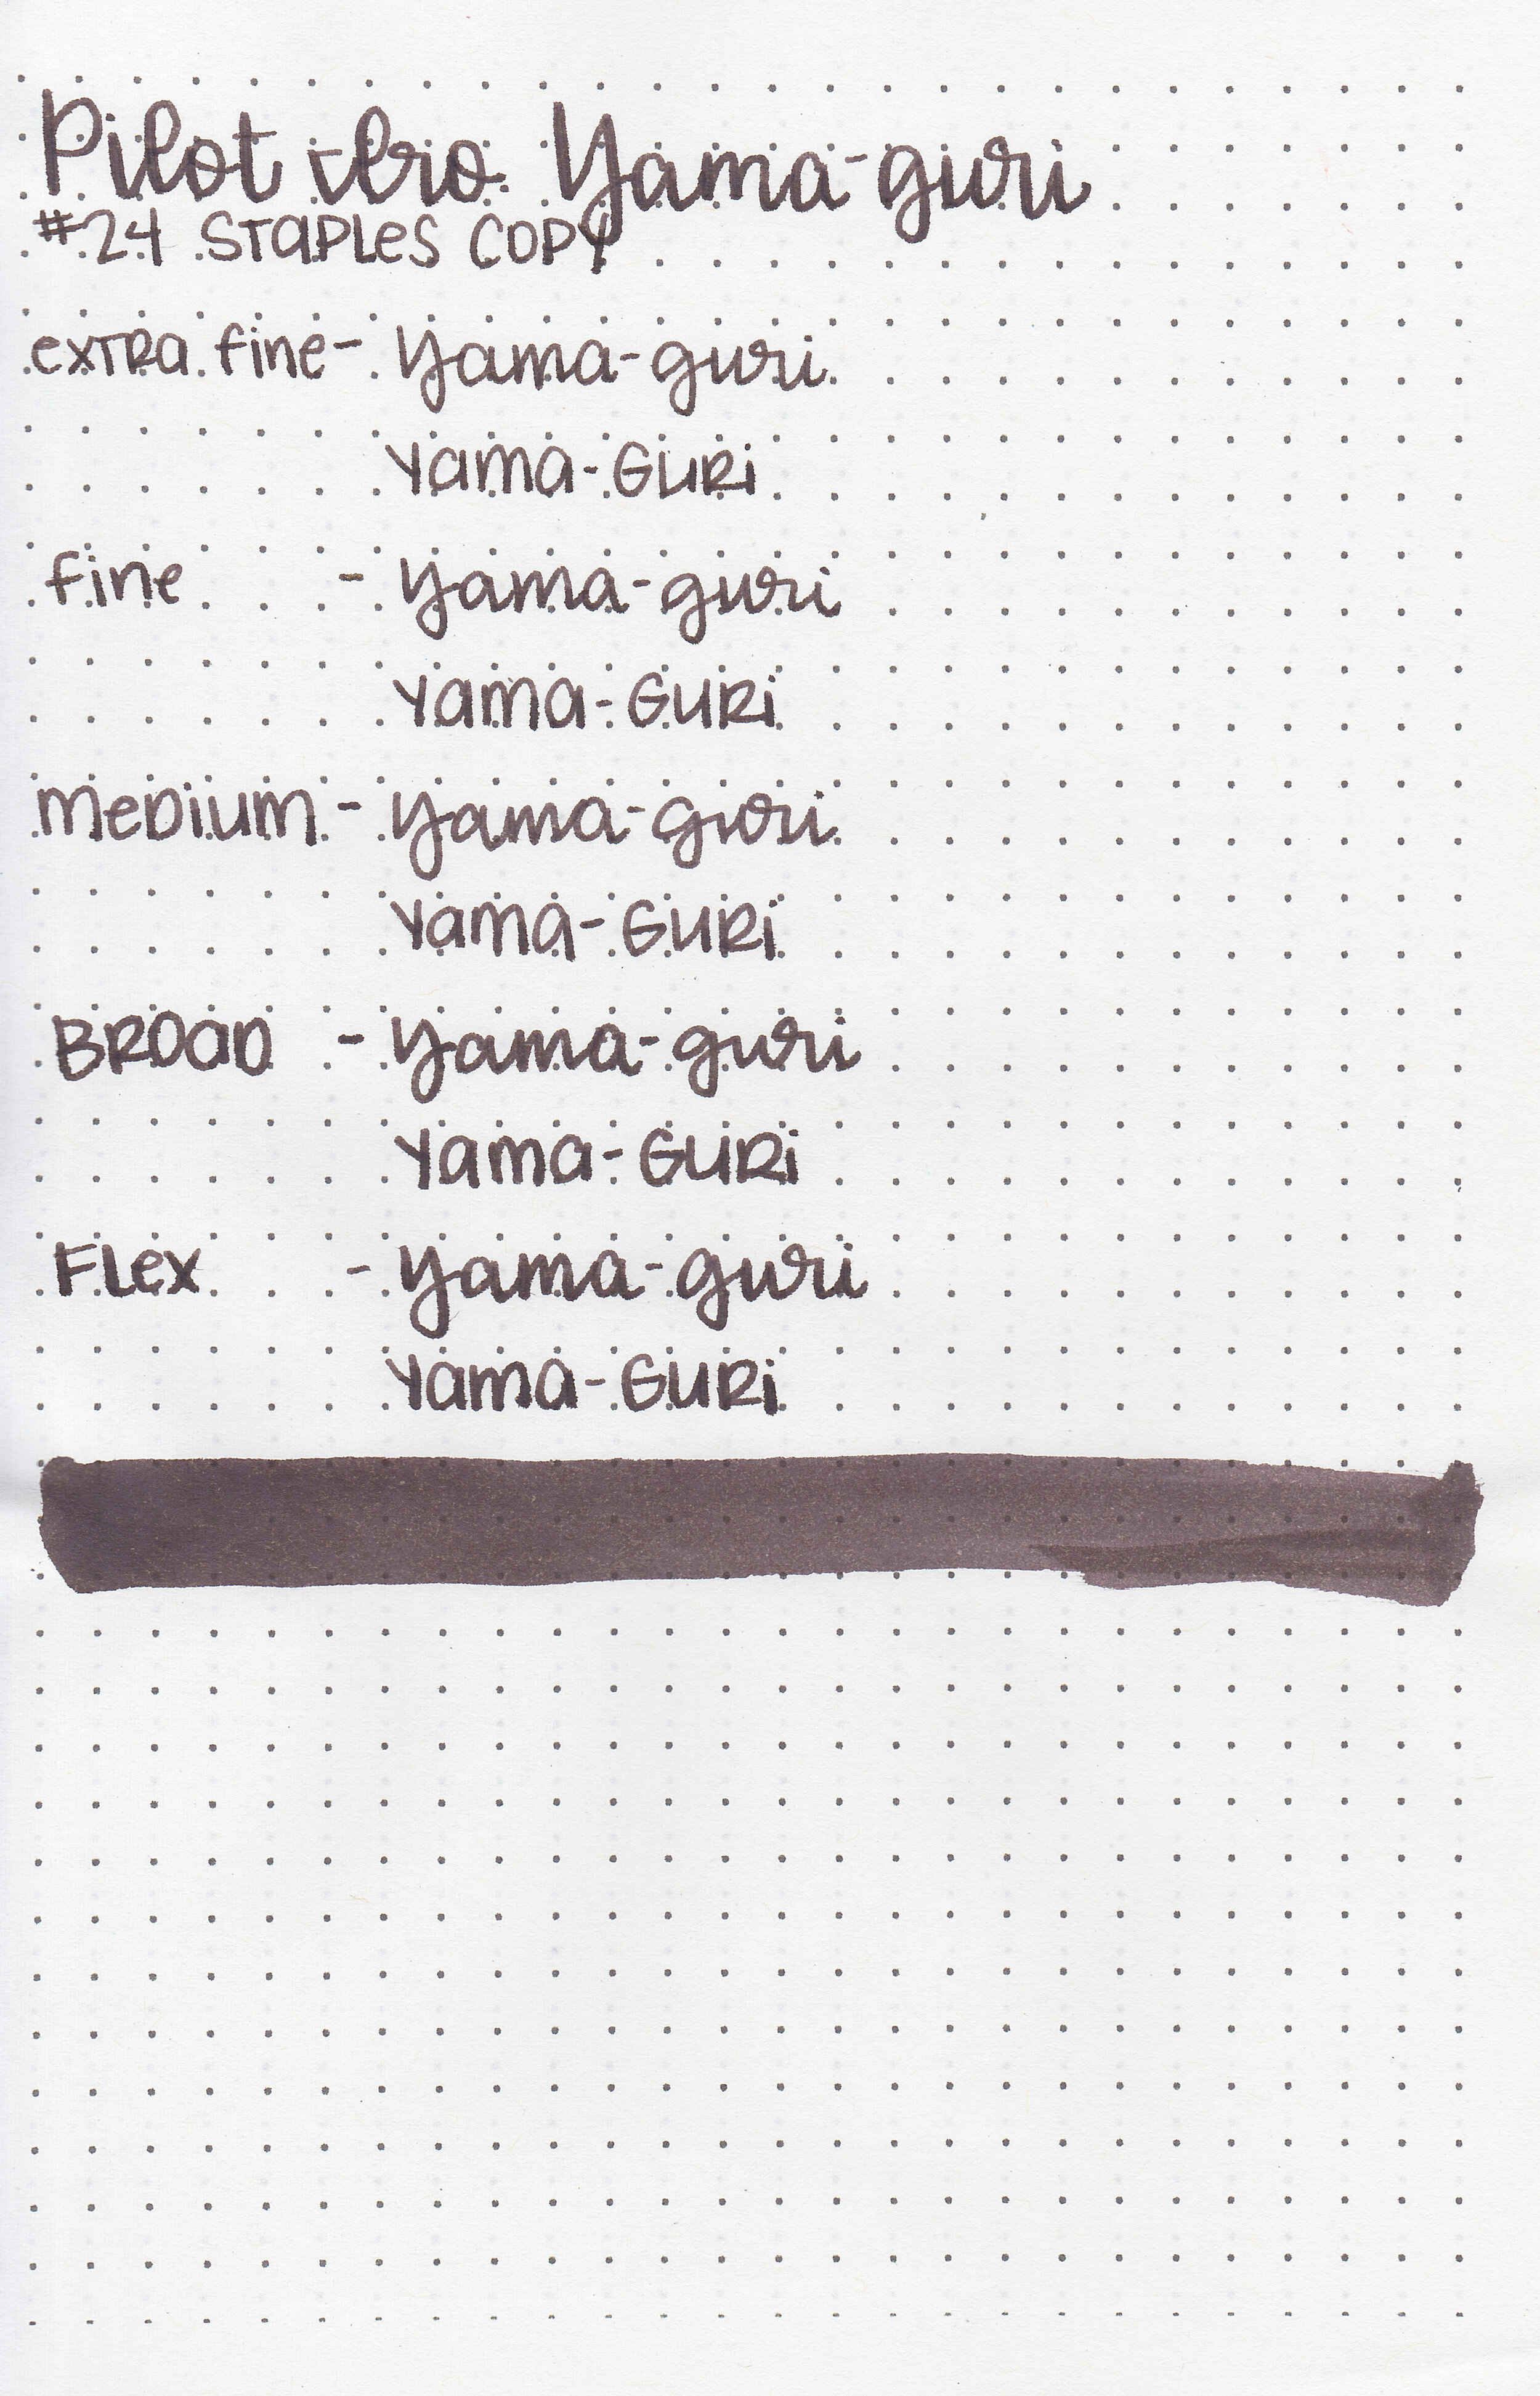 Pilot iro Yama-guri
#24 STaPLes COPY
exTRa fine - Yama-guri
Yama-GURi
fine - Yama-guri
Yama-GURi
meDium - Yama-guri
Yama-GURi
BROaD - Yama-guri
Yama-GURi
FLex - Yama-guri
Yama-GURi